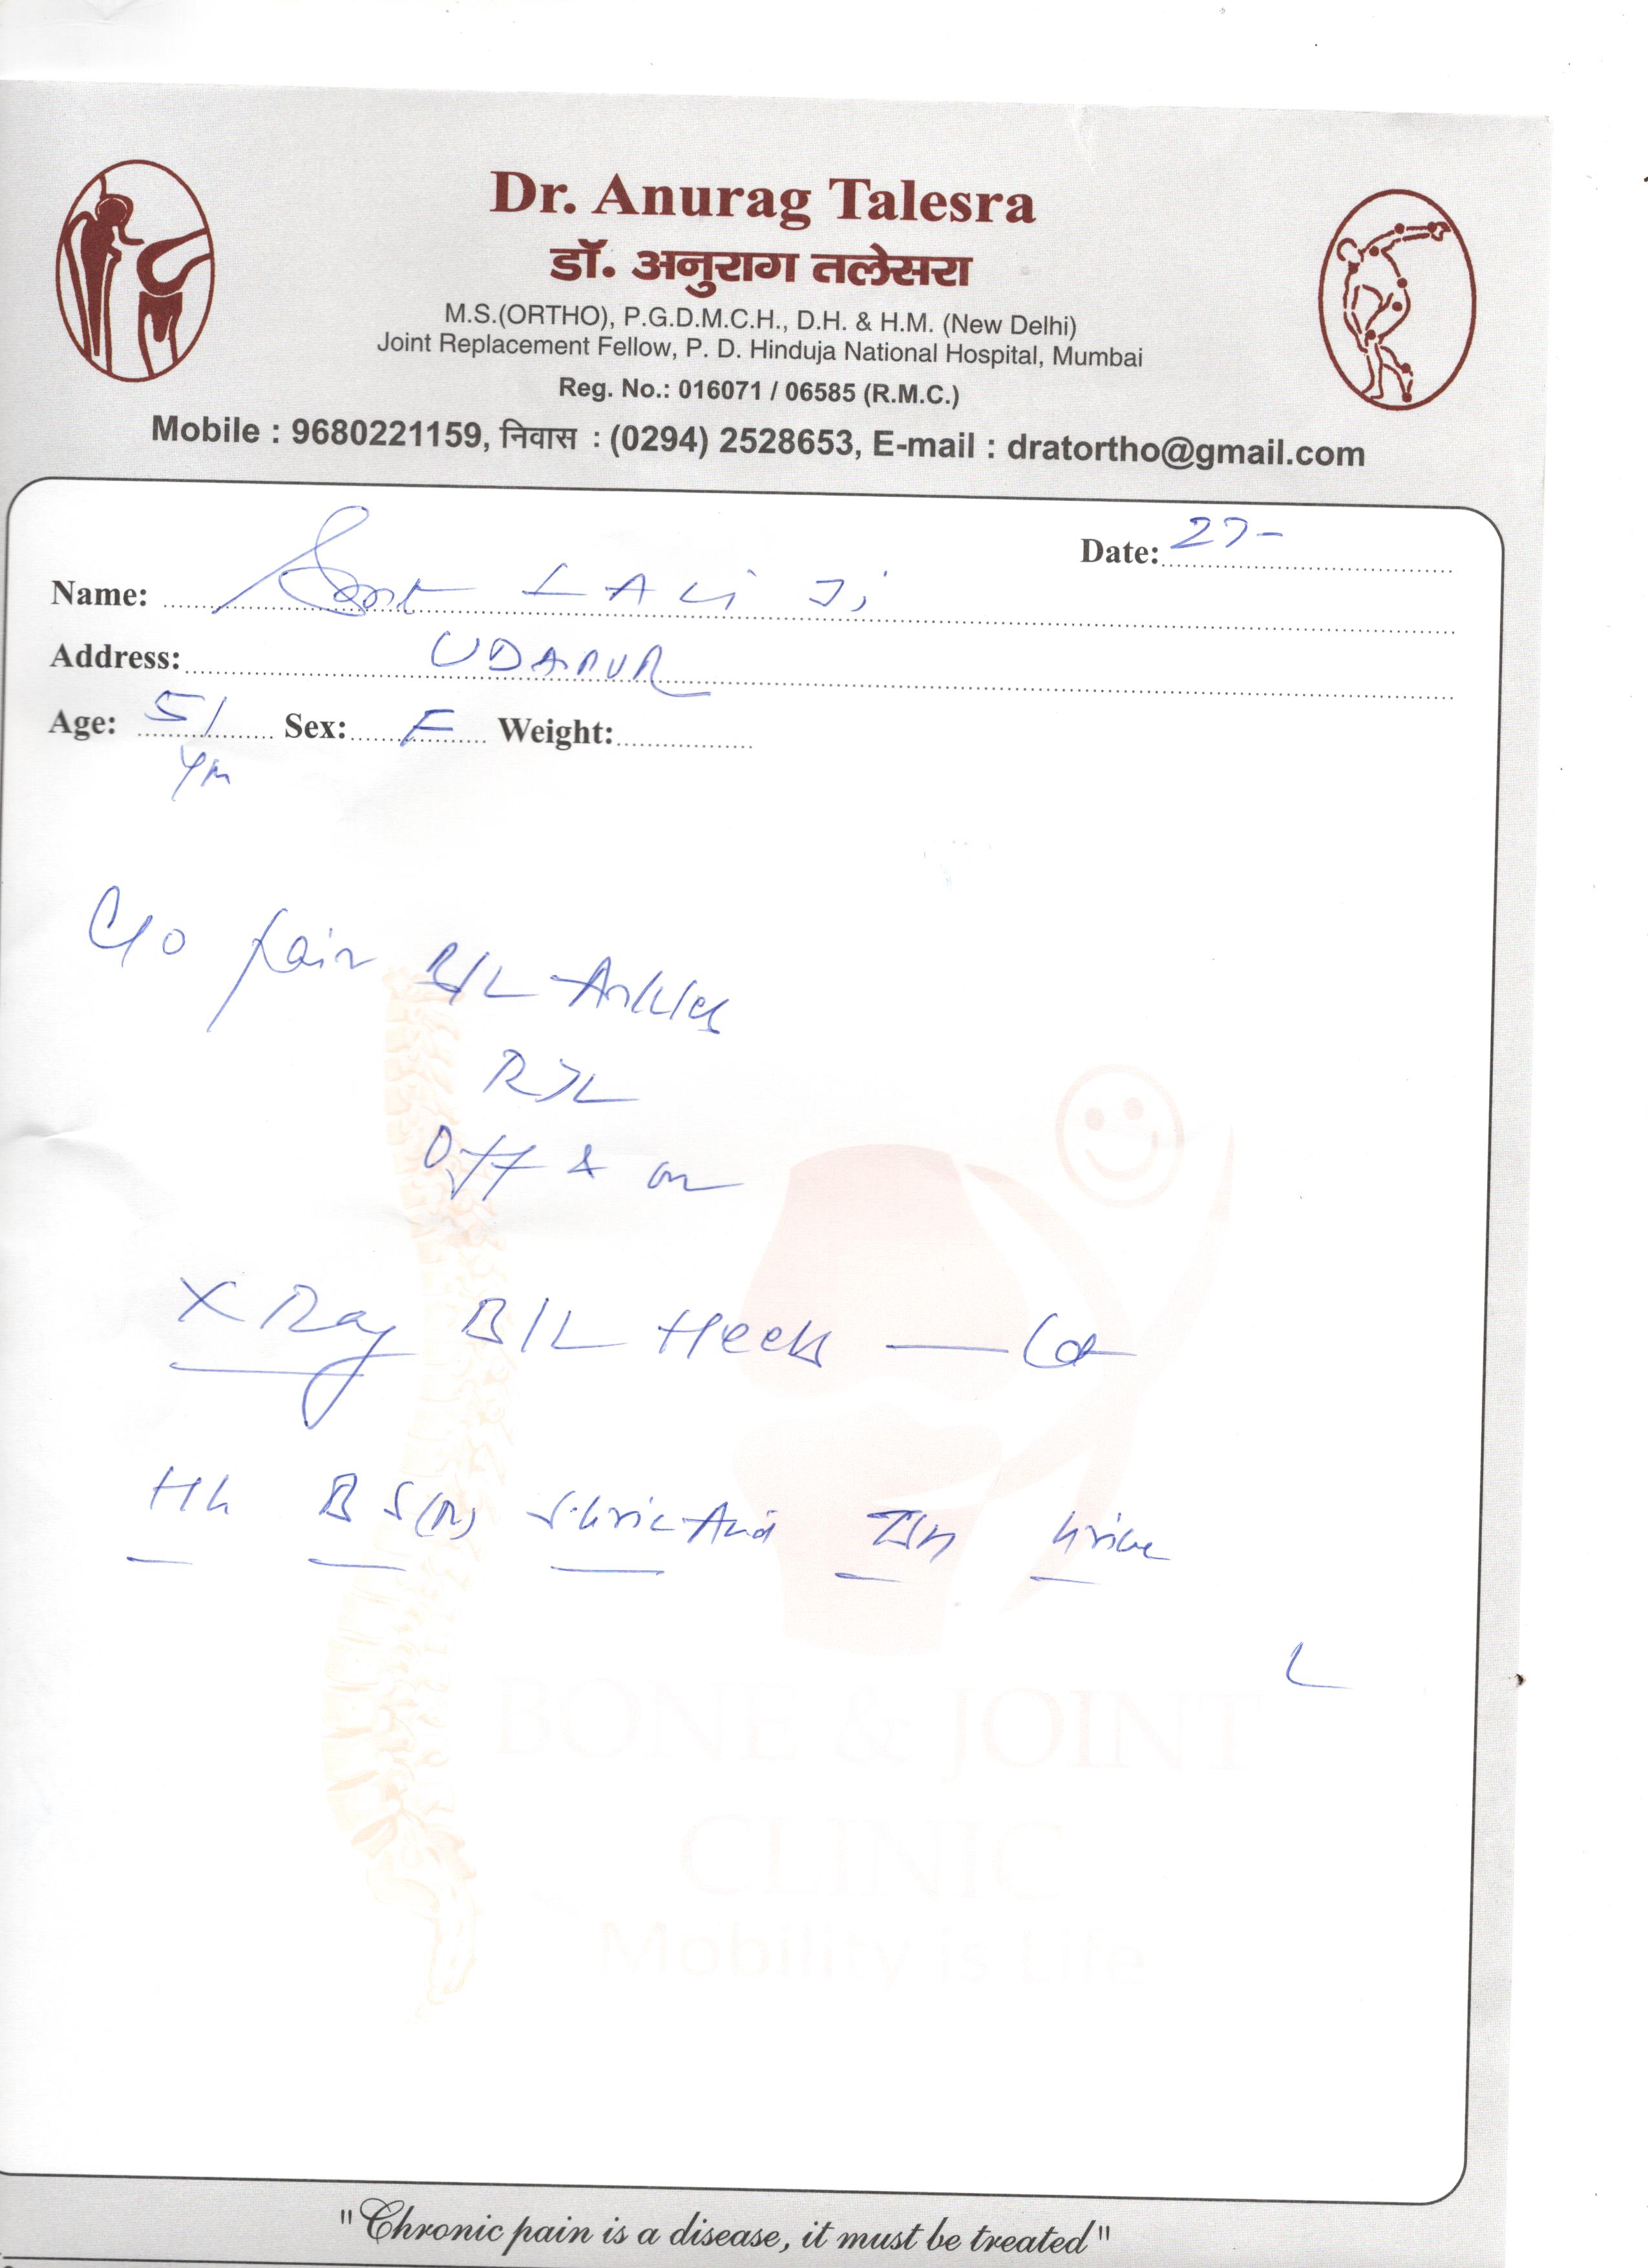 Dr. Anurag Talesra
डॉ. अनुराग तलेसरा
M.S.(ORTHO), P.G.D.M.C.H., D.H. & H.M. (New Delhi)
Joint Replacement Fellow, P. D. Hinduja National Hospital, Mumbai
Reg. No.: 016071 / 06585 (R.M.C.)
Mobile : 9680221159, निवास : (0294) 2528653, E-mail : dratortho@gmail.com
Date: 27-
Name: Smt LALI Ji
Address: UDAIPUR
Age: 51 Sex: F Weight:
Yr
C/o pain B/L Ankles
R>L
Off & on
X Ray B/L Heels — Lat
Hb BS(R) S.Uric Acid TSH Urine
L
BONE & JOINT
CLINIC
Mobility is Life
"Chronic pain is a disease, it must be treated"